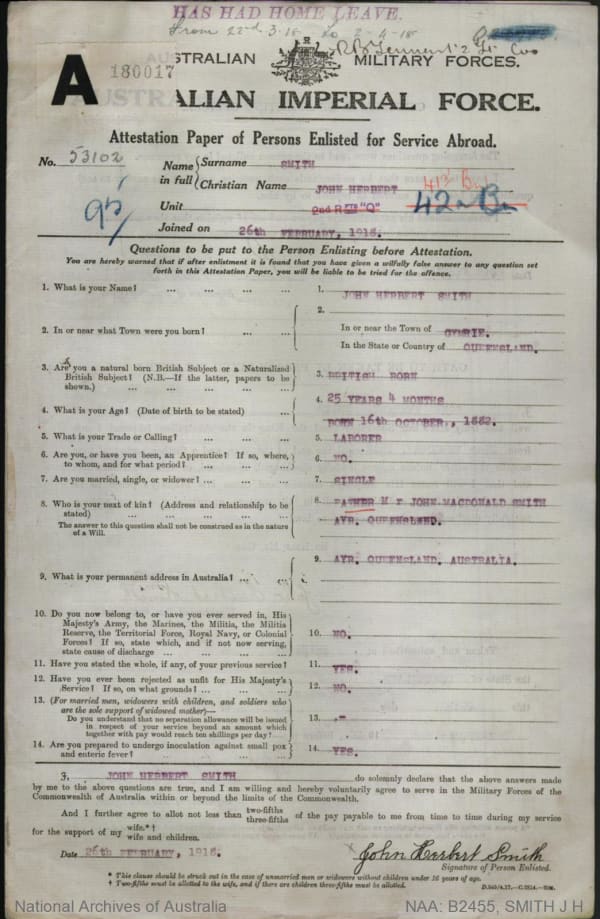 HAS HAD HOME LEAVE.
From 22nd 3-18 to 2-4-18
A
180017
AUSTRALIAN MILITARY FORCES.
AUSTRALIAN IMPERIAL FORCE.
Attestation Paper of Persons Enlisted for Service Abroad.
No. 53102
Name in full { Surname SMITH
Christian Name JOHN HERBERT
41st Bn
Unit 2nd R "Q" 42n Bn
Joined on 26th FEBRUARY, 1918.
Questions to be put to the Person Enlisting before Attestation.
You are hereby warned that if after enlistment it is found that you have given a wilfully false answer to any question set
forth in this Attestation Paper, you will be liable to be tried for the offence.
1. What is your Name? ... ... ... ... 1. JOHN HERBERT SMITH
2. In or near what Town were you born? ... ... 2. In or near the Town of GYMPIE.
In the State or Country of QUEENSLAND.
3. Are you a natural born British Subject or a Naturalized
British Subject? (N.B.—If the latter, papers to be
shown.) ... ... ... ... 3. BRITISH BORN
4. What is your Age? (Date of birth to be stated) ... 4. 25 YEARS 4 MONTHS
BORN 16th OCTOBER., 1892.
5. What is your Trade or Calling? ... ... ... 5. LABORER
6. Are you, or have you been, an Apprentice? If so, where,
to whom, and for what period? ... ... ... 6. NO.
7. Are you married, single, or widower? ... ... 7. SINGLE
8. Who is your next of kin? (Address and relationship to be
stated) ... ... ... ... 8. FATHER M r JOHN MACDONALD SMITH
The answer to this question shall not be construed as in the nature
of a Will.
AYR. QUEENSLAND.
9. What is your permanent address in Australia? ... ... 9. AYR. QUEENSLAND. AUSTRALIA.
10. Do you now belong to, or have you ever served in, His
Majesty's Army, the Marines, the Militia, the Militia
Reserve, the Territorial Force, Royal Navy, or Colonial
Forces? If so, state which, and if not now serving,
state cause of discharge ... ... ... ... 10. NO.
11. Have you stated the whole, if any, of your previous service? 11. YES.
12. Have you ever been rejected as unfit for His Majesty's
Service? If so, on what grounds? ... ... ... 12. NO.
13. (For married men, widowers with children, and soldiers who
are the sole support of widowed mother)—
Do you understand that no separation allowance will be issued
in respect of your service beyond an amount which
together with pay would reach ten shillings per day? ... 13. .-
14. Are you prepared to undergo inoculation against small pox
and enteric fever? ... ... ... ... 14. YES.
I, JOHN HERBERT SMITH do solemnly declare that the above answers made
by me to the above questions are true, and I am willing and hereby voluntarily agree to serve in the Military Forces of the
Commonwealth of Australia within or beyond the limits of the Commonwealth.
And I further agree to allot not less than two-fifths three-fifths of the pay payable to me from time to time during my service
for the support of my wife.*† wife and children.
Date 26th FEBRUARY, 1918. John Herbert Smith
Signature of Person Enlisted.
* This clause should be struck out in the case of unmarried men or widowers without children under 16 years of age.
† Two-fifths must be allotted to the wife, and if there are children three-fifths must be allotted.
National Archives of Australia
NAA: B2455, SMITH J H